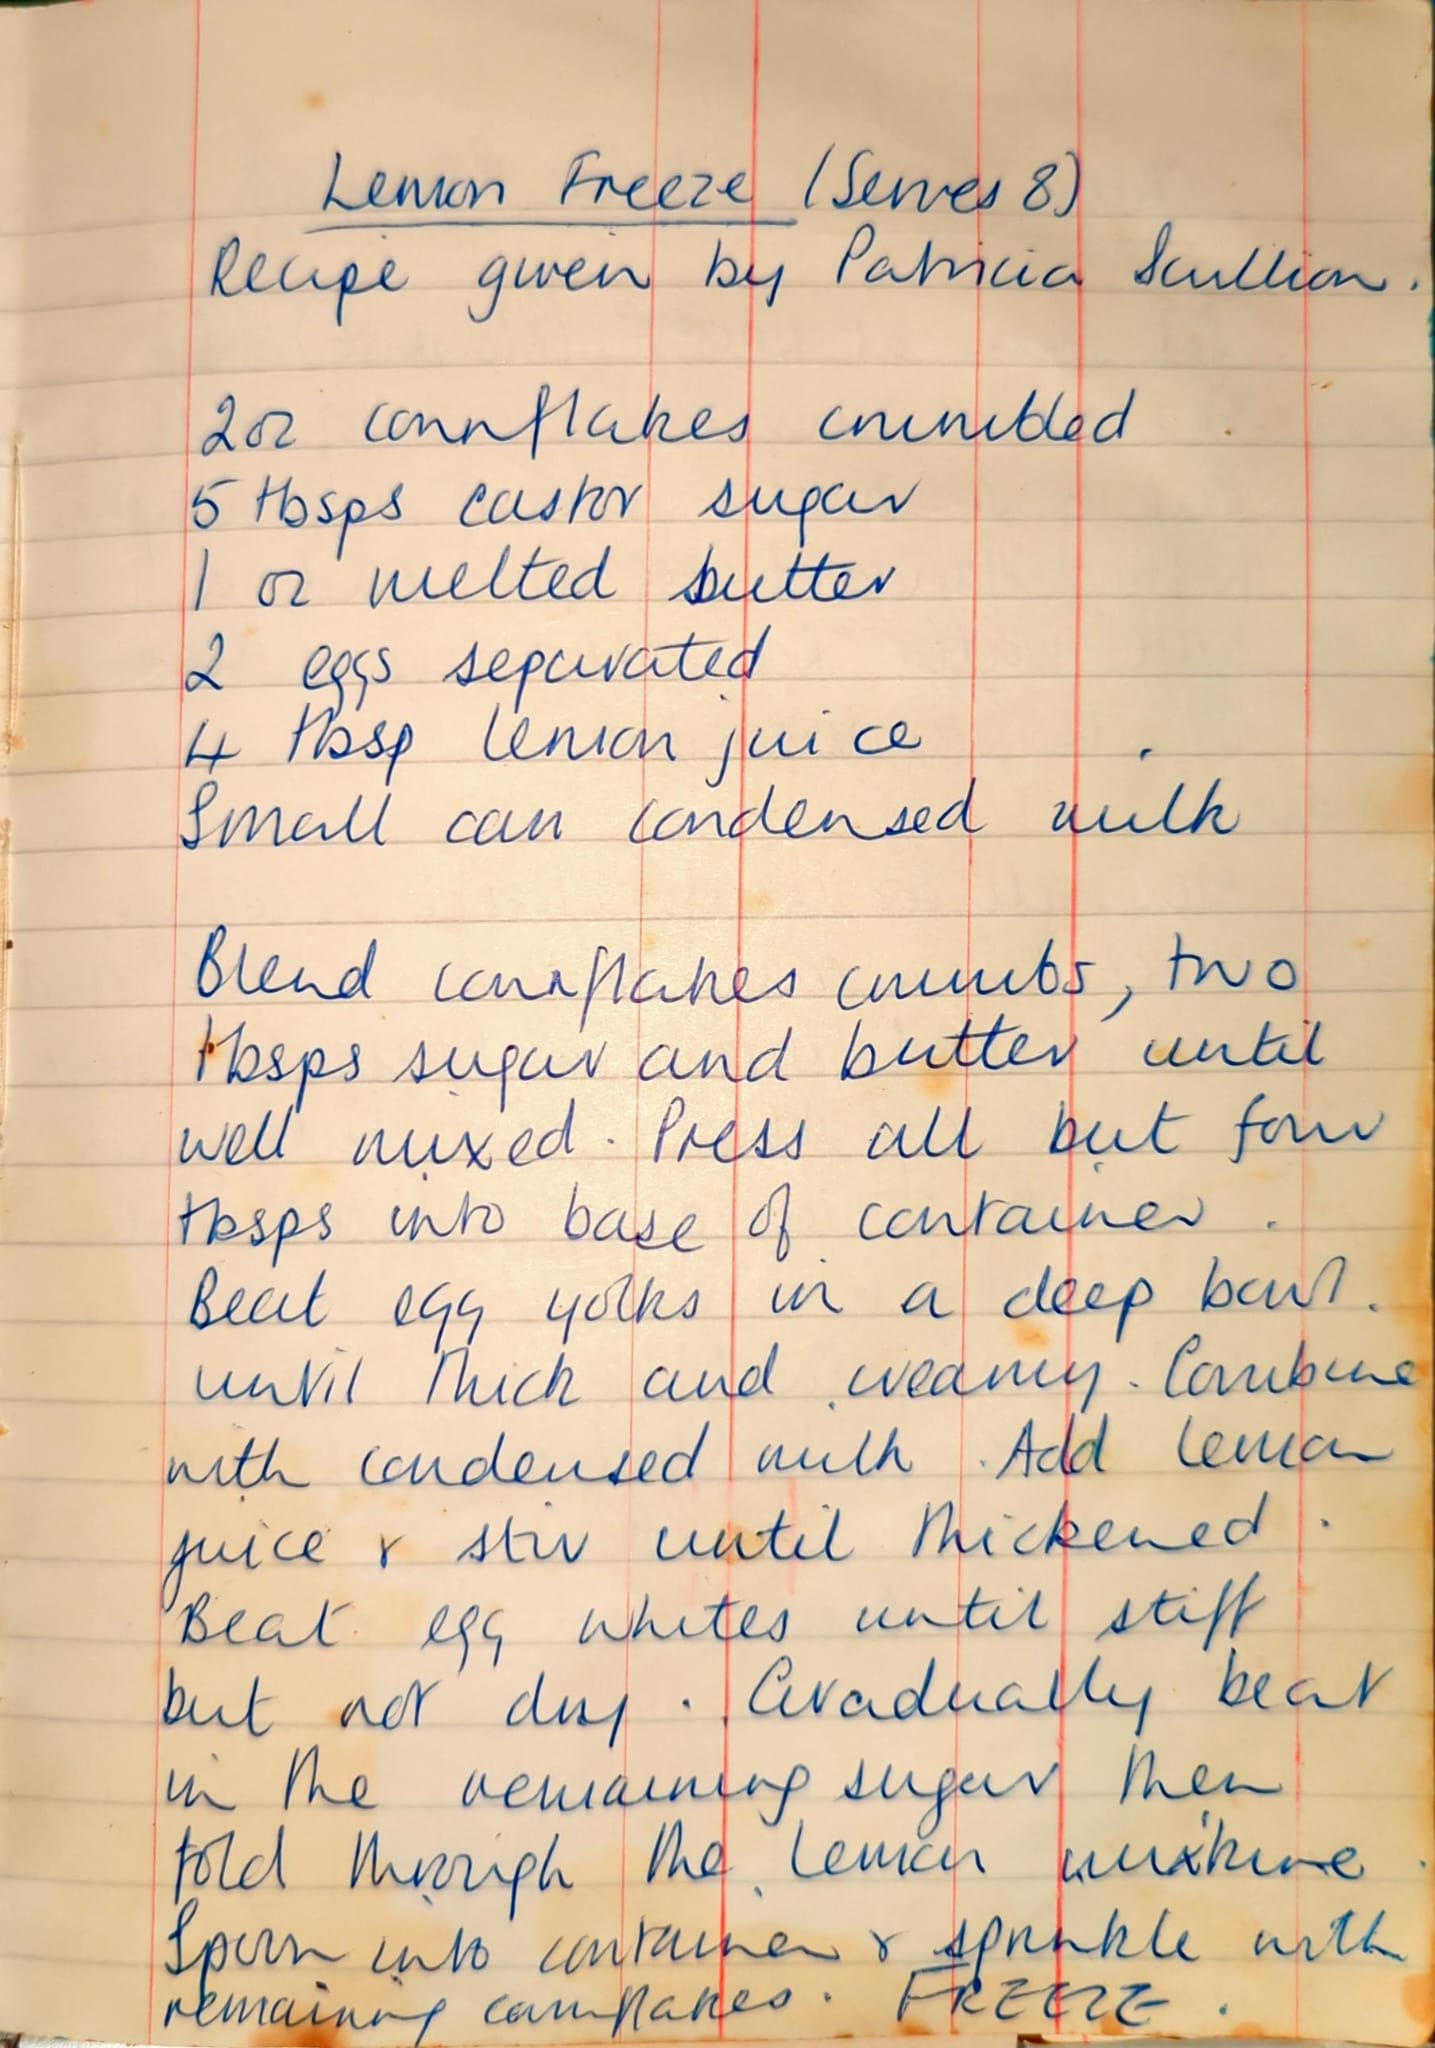 Lemon Freeze (Serves 8)
Recipe given by Patricia Scullion.
2oz cornflakes crumbled
5 tbsps castor sugar
1 oz melted butter
2 eggs separated
4 tbsp lemon juice
Small can condensed milk
Blend cornflakes crumbs, two
tbsps sugar and butter until
well mixed. Press all but four
tbsps into base of container.
Beat egg yolks in a deep bowl.
until thick and creamy. Combine
with condensed milk. Add lemon
juice & stir until thickened.
Beat egg whites until stiff
but not dry. Gradually beat
in the remaining sugar then
fold through the lemon mixture.
Spoon into container & sprinkle with
remaining cornflakes. FREEZE.